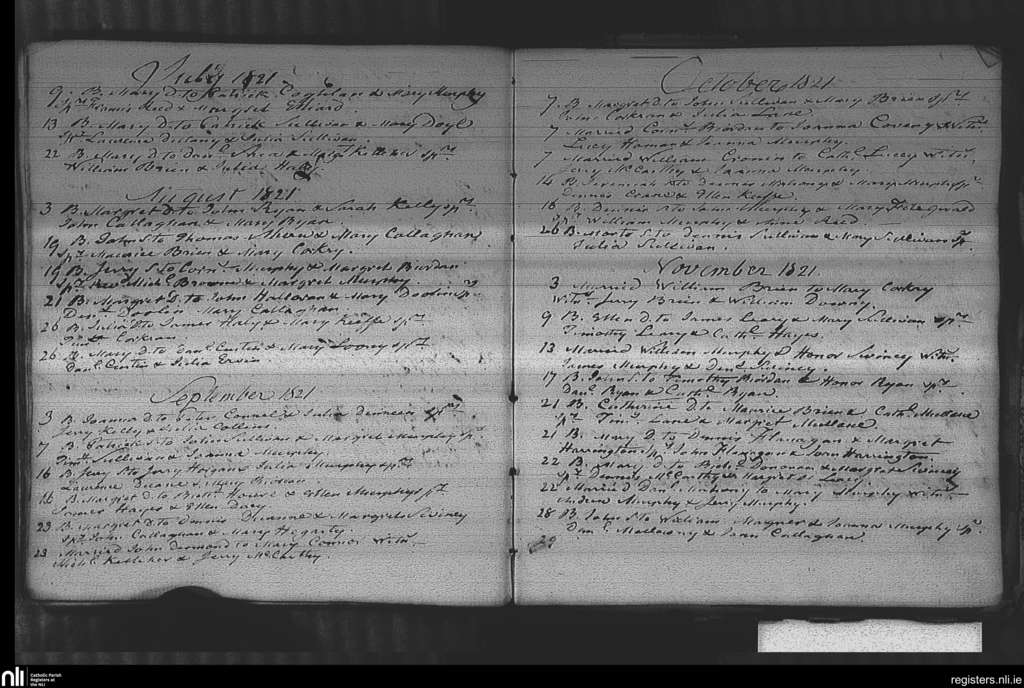 July 1821
9 B. Mary D. to Patrick Coghlan & Mary Murphy
Spr. Francis Reed & Margret
13 B. Mary D. to Patrick Sullivan & Mary Doyl
Spr. Laurence Dulany & Julia Sullivan
22 B. Mary D. to Danl. Shea & Margt. Kelleher spr.
William Brien & Julia
August 1821
3 B. Margret D. to John Ryan & Sarah Kelly spr.
John Callaghan & Mary Ryan
19 B. John S. to Thomas Ahern & Mary Callaghan
Spr. Maurice Brien & Mary Corkry
19 B. Jerry S. to Corns. Murphy & Margret Riordan
Spr. Michl. Browne & Margret Murphy
21 B. Margret D. to John Halloran & Mary Doolin spr.
Denis Doolin Mary Callaghan
26 B. Julia D. to James Haly & Mary Keeffe spr.
Corkran
26 B. Mary D. to Danl. Curtin & Mary Looney spr.
Danl. Curtin & Julia
September 1821
3 B. Joanna D. to Peter Connel & Julia spr.
Jerry Kelly & Julia Collins
7 B. Patrick S. to John Sullivan & Margret Murphy spr.
Timy. Sullivan & Joanna Murphy
16 B. S. to Jerry Horgan & Julia Murphy spr.
Laurence Duane & Mary
16 B. Margret D. to & Ellen Murphy spr.
James Hayes & Ellen Dacy
23 B. Margret D. to Dennis & Margret Swiney
Spr. John Callaghan & Mary Hegarty
23 Married John Dermond to Mary Connor Witns.
Michl. Kelleher & Jerry McCarthy
October 1821
7 B. Margret D. to John Sullivan & Mary Brien spr.
Corkran & Julia Lane
7 Married Corns. Riordan to Joanna Coveny Witns.
& Joanna Murphy
7 Married William Cronin to Cathe. Lucey Witns.
Jerry McCarthy & Joanna Murphy
14 B. Jeremiah S. to Dennis Mahony & Mary Murphy spr.
Dennis Crane & Ellen Keeffe
16 B. Dennis S. to Murphy & Mary Fitzgerald
Spr. William Murphy & Reed
26 B. S. to Dennis Sullivan & Mary Sullivan Sp.
Julia Sullivan
November 1821
3 Married William Brien to Mary Corkry
Witns. Jerry Brien & William
9 B. Ellen D. to James Leary & Mary Sullivan spr.
Timothy Leary & Cathe. Hayes
13 Married William Murphy & Honor Swiney Witns.
James Murphy & Denis Swiney
17 B. John S. to Timothy Riordan & Honor Ryan spr.
Danl. Ryan & Cathe. Ryan
21 B. Catherine D. to Maurice Brien & Cathe. Mullane
Spr. Timy. Lane & Margret Mullane
21 B. Mary D. to Dennis Flanagan & Margret
Harrington Sp. John Flanagan & Joan Harrington
22 B. Mary D. to Richd. Donovan & Margret Swiney
Spr. Dennis McCarthy & Margret Lucey
22 Married Danl. Mahony to Mary Murphy Witns.
Andrew Murphy & Jerry Murphy
28 B. John S. to William Magner & Joanna Murphy Sp.
Danl. Mullowny & Joan Callaghan
29
nli
Catholic Parish
Registers at
the NLI
registers.nli.ie